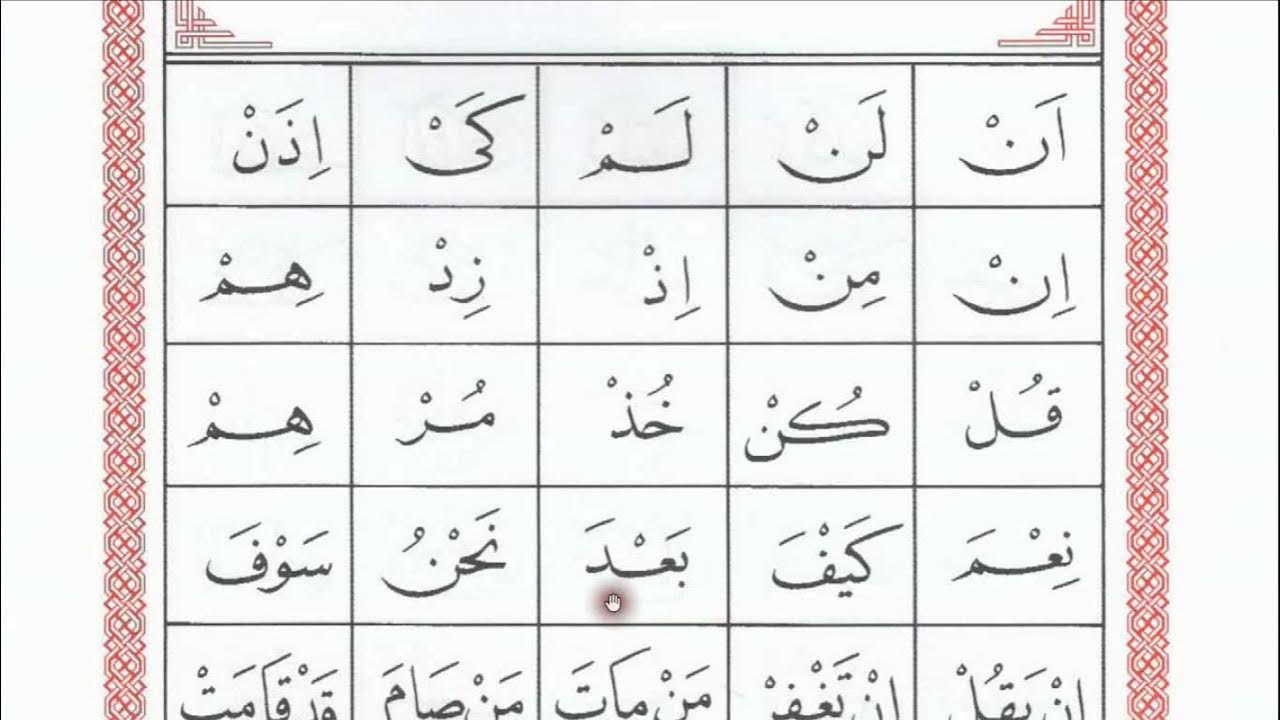 اَنْ لَنْ لَمْ كَىْ اِذَنْ
اِنْ مِنْ اِذْ زِدْ هِمْ
قُلْ كُنْ خُذْ مُرْ هِمْ
نِعْمَ كَيْفَ بَعْدَ نَحْنُ سَوْفَ
اِنْ يَقُلْ اِنْ تَغْفِرْ مَنْ مَاتَ مَنْ صَامَ قَدْ قَامَتْ